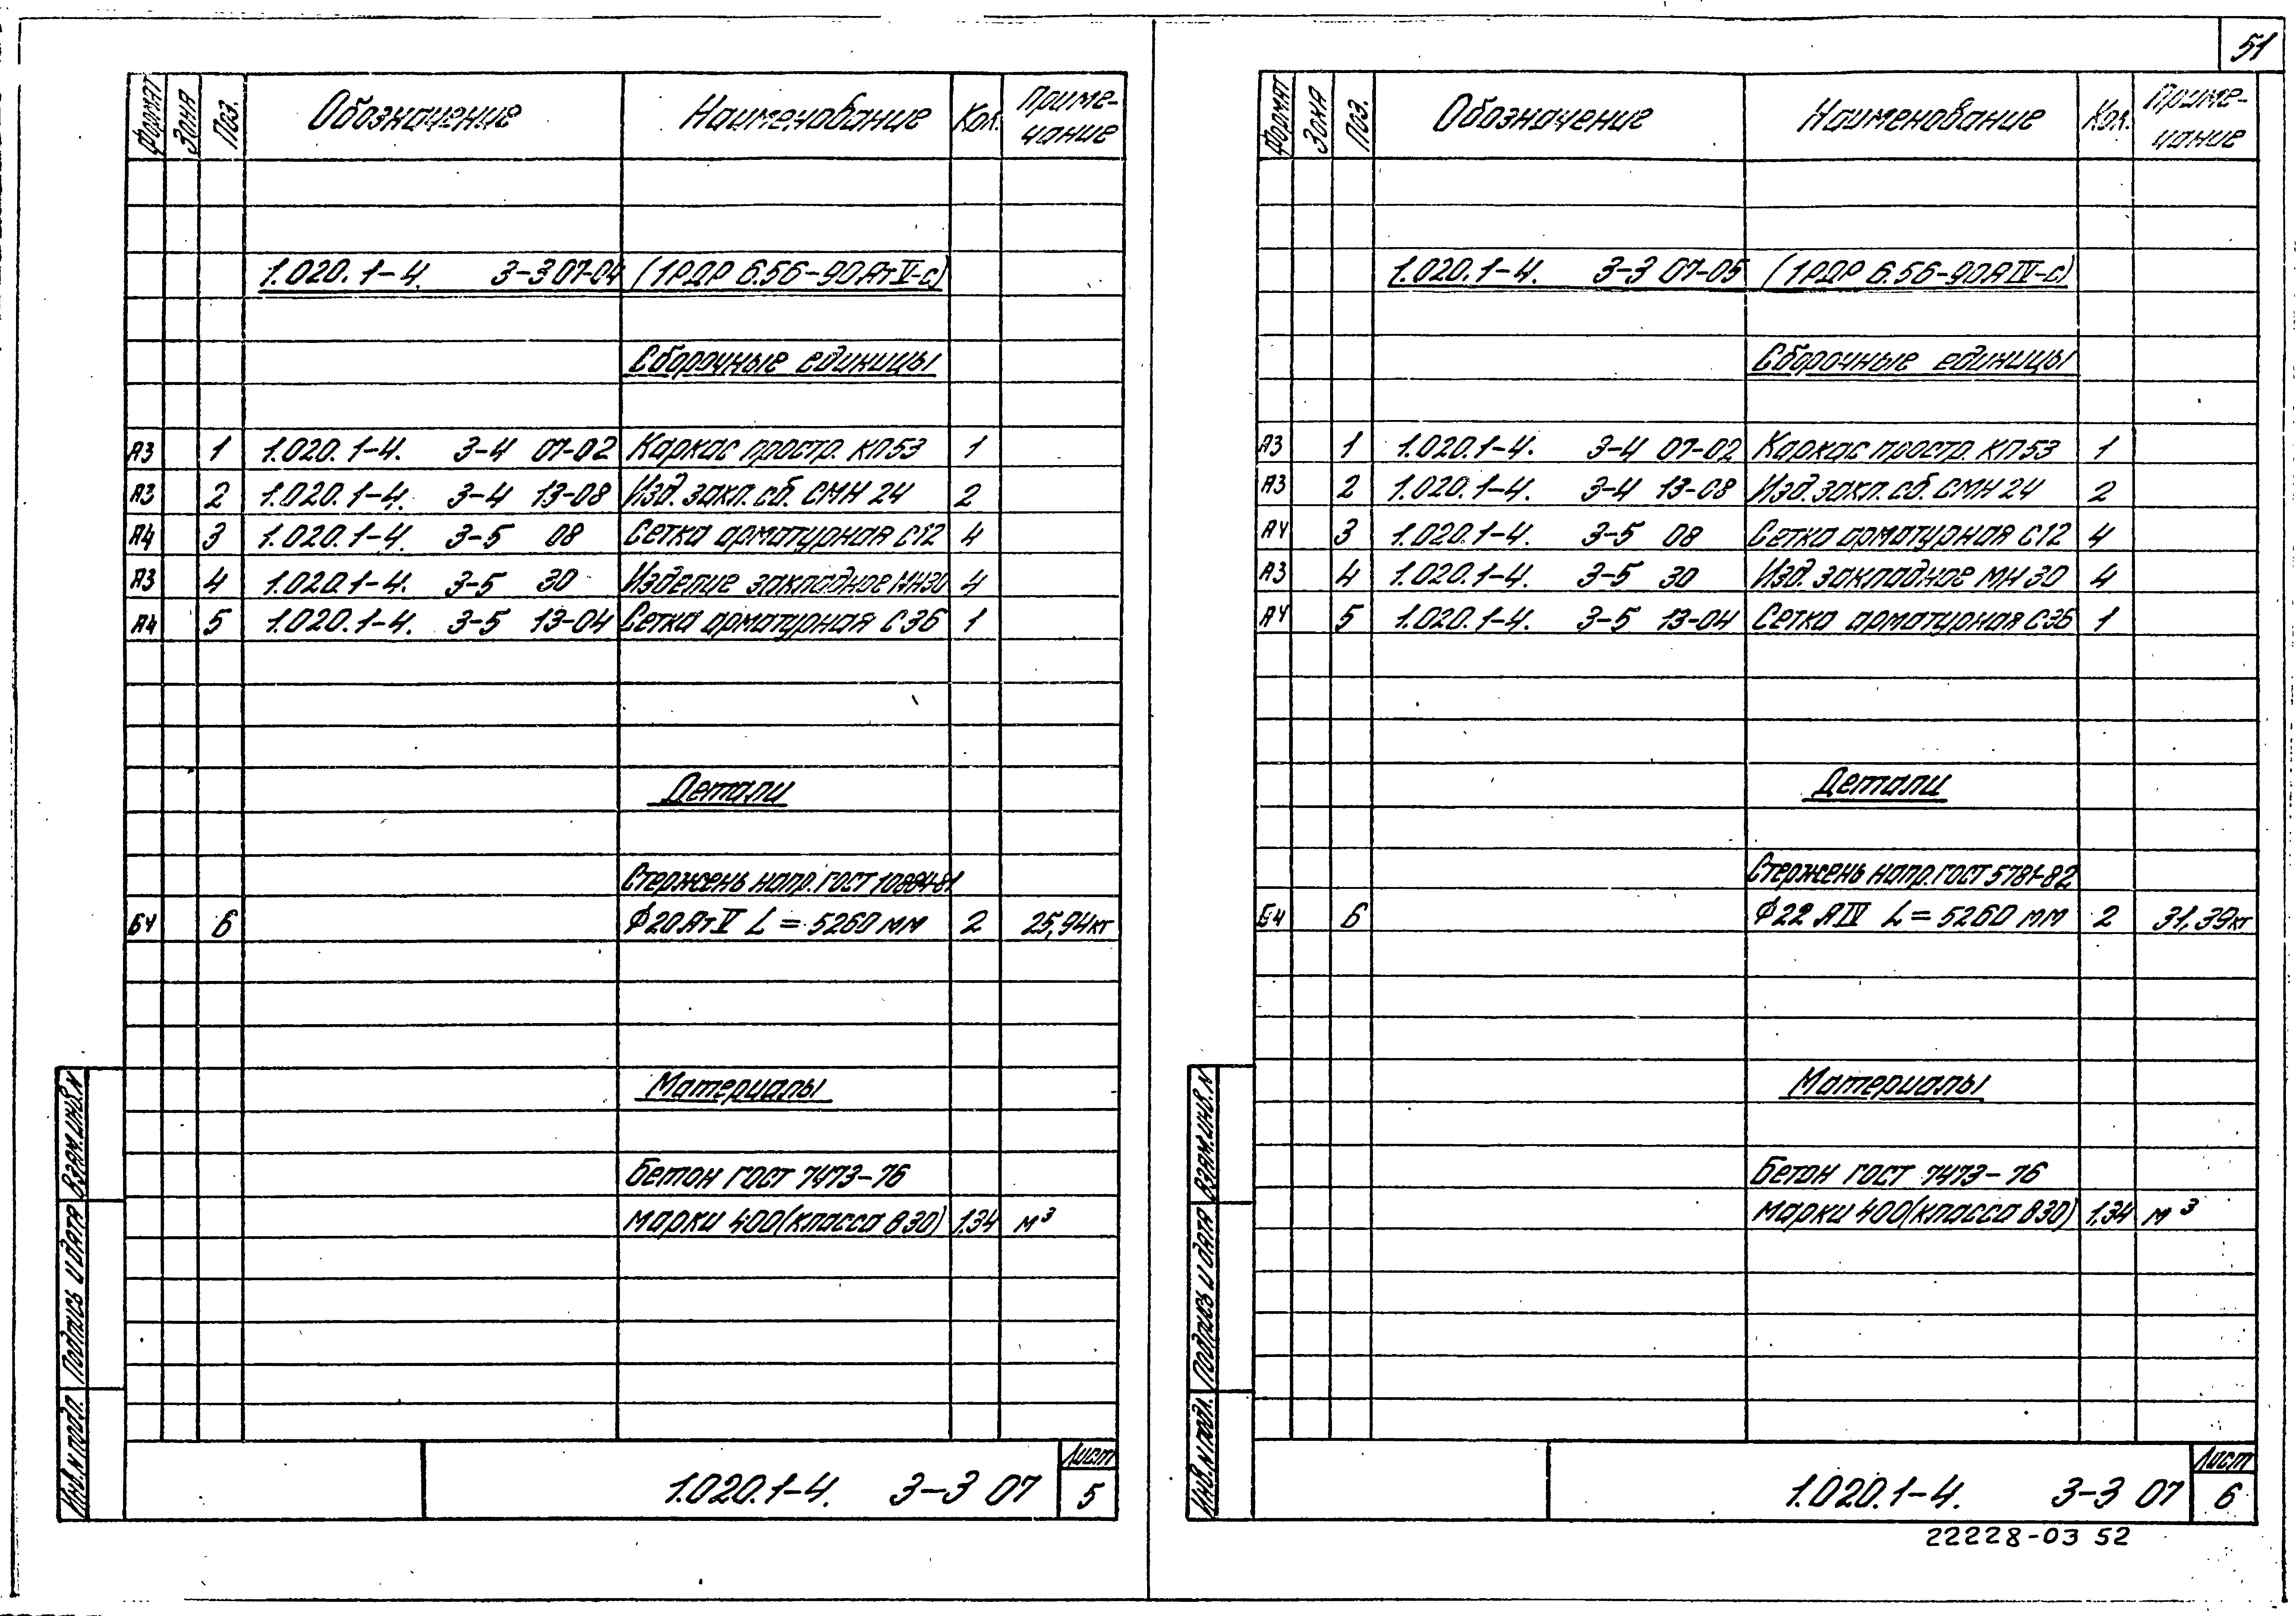 51
Формат Зона Поз. Обозначение Наименование Кол. Приме-
чание
1.020.1-4. 3-3 07-04 (1РДР 6.56-90АтV-с)
Сборочные единицы
А3 1 1.020.1-4. 3-4 07-02 Каркас простр. КП53 1
А3 2 1.020.1-4. 3-4 13-08 Изд. закл. сб. СМН 24 2
А4 3 1.020.1-4. 3-5 08 Сетка арматурная С12 4
А3 4 1.020.1-4. 3-5 30 Изделие закладное МН30 4
А4 5 1.020.1-4. 3-5 13-04 Сетка арматурная С36 1
Детали
Стержень напр. ГОСТ 10884-81
БЧ 6 Ф20АтV L = 5260 мм 2 25,94кг
Материалы
Бетон ГОСТ 7473-76
марки 400(класса В30) 1.34 м³
Инв.N подл. Подпись и дата Взам.инв.N
1.020.1-4. 3-3 07
Лист
5
Формат Зона Поз. Обозначение Наименование Кол. Приме-
чание
1.020.1-4. 3-3 07-05 (1РДР 6.56-90АIV-с)
Сборочные единицы
А3 1 1.020.1-4. 3-4 07-02 Каркас простр. КП53 1
А3 2 1.020.1-4. 3-4 13-08 Изд. закл. сб. СМН 24 2
А4 3 1.020.1-4. 3-5 08 Сетка арматурная С12 4
А3 4 1.020.1-4. 3-5 30 Изд. закладное МН 30 4
А4 5 1.020.1-4. 3-5 13-04 Сетка арматурная С36 1
Детали
Стержень напр. ГОСТ 5781-82
БЧ 6 Ф22 АIV L = 5260 мм 2 31,39кг
Материалы
Бетон ГОСТ 7473-76
марки 400(класса В30) 1.34 м³
Инв.N подл. Подпись и дата Взам.инв.N
1.020.1-4. 3-3 07
Лист
6
22228-03 52